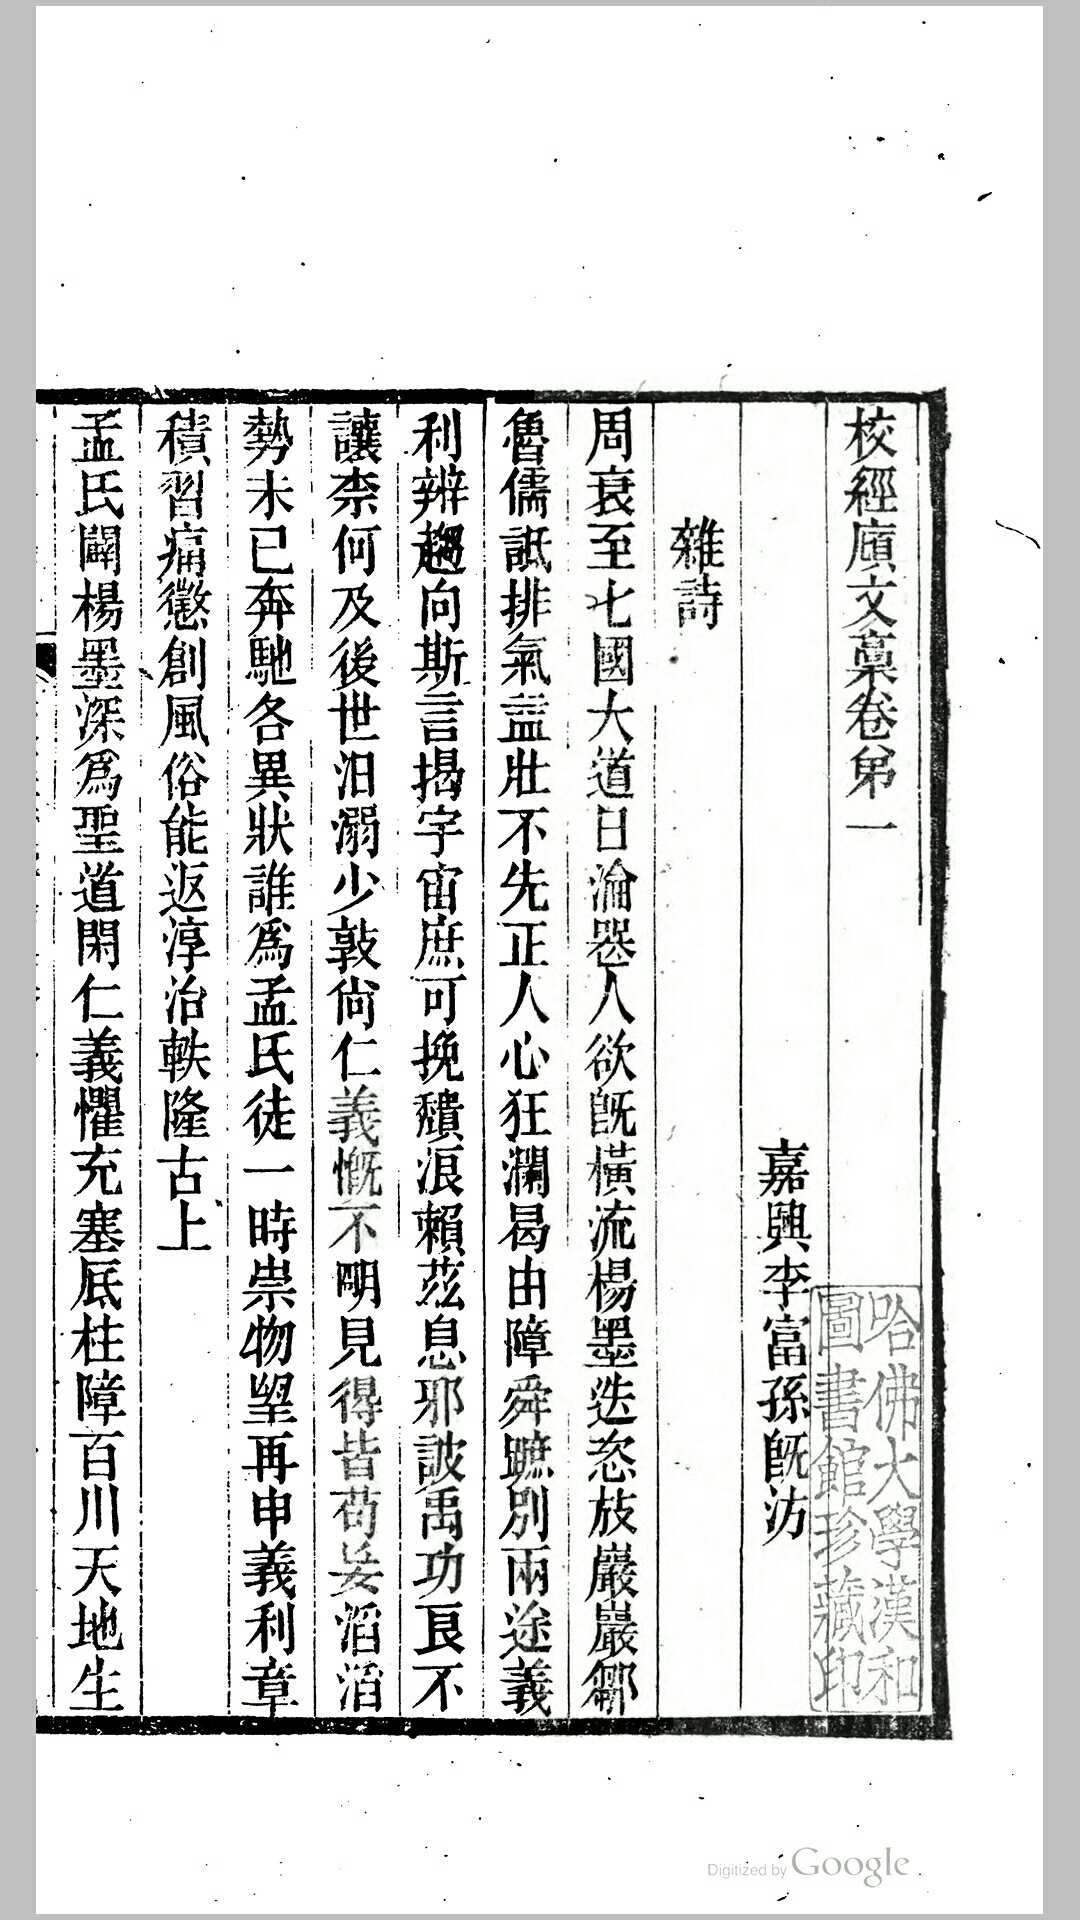 校經廎文稾卷弟一
嘉興李富孫旣汸
雜詩
周衰至七國大道日淪器人欲旣橫流楊墨迭恣放巖巖鄒
魯儒詆排氣益壯不先正人心狂瀾曷由障舜蹠別兩途義
利辨趨向斯言揭宇宙庶可挽頹浪賴茲息邪詖禹功良不
讓柰何及後世汨溺少敦尚仁義慨不明見得皆苟妄滔滔
勢未已奔馳各異狀誰爲孟氏徒一時祟物望再申義利章
積習痛懲創風俗能返淳治軼隆古上
孟氏闢楊墨深爲聖道閑仁義懼充塞底柱障百川天地生
哈佛大學漢和
圖書館珍藏印
Digitized by Google